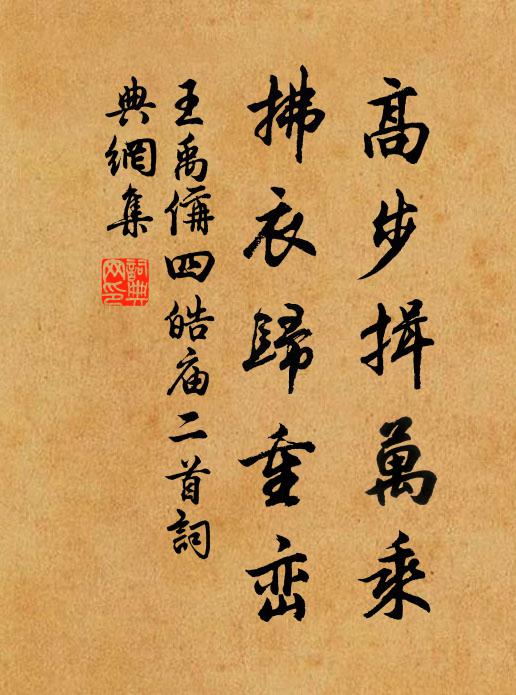 高步揖萬乘
拂衣歸重峦
王禹偁四皓庙二首詞
典網集
詞典网印